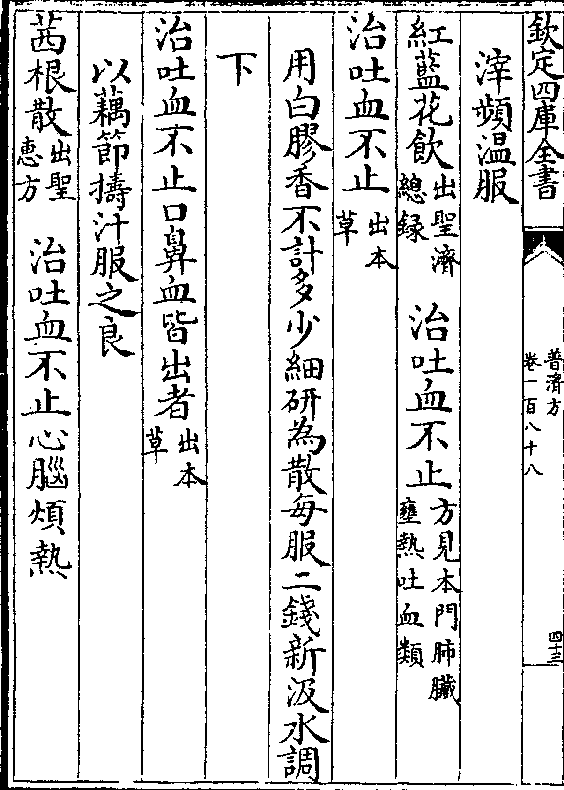 欽定四庫全書
普濟方
卷一百八十八
四十三
滓頻温服
紅藍花飲出聖濟總録 治吐血不止方見本門肺臟壅熱吐血類
治吐血不止出本草
用白膠香不計多少細研為散每服二錢新汲水調
下
治吐血不止口鼻血皆出者出本草
以藕節擣汁服之良
茜根散出聖惠方 治吐血不止心腦煩熱